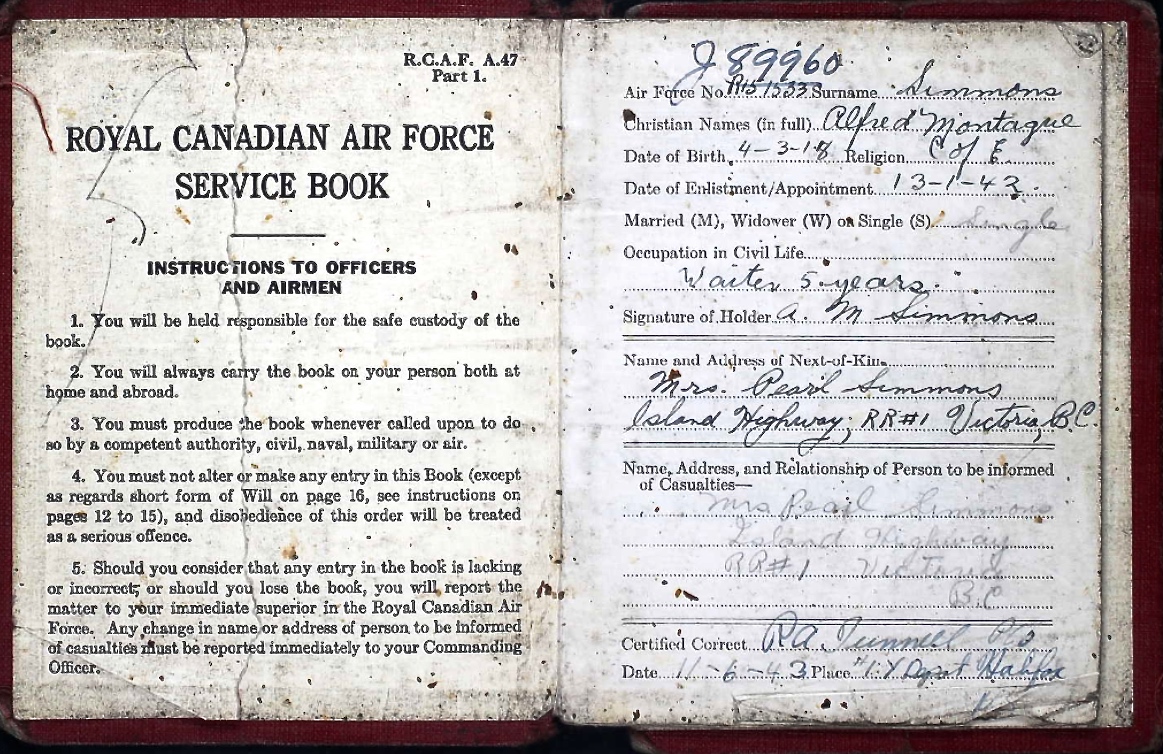 R.C.A.F. A.47
Part 1.
ROYAL CANADIAN AIR FORCE
SERVICE BOOK
INSTRUCTIONS TO OFFICERS
AND AIRMEN
1. You will be held responsible for the safe custody of the
book.
2. You will always carry the book on your person both at
home and abroad.
3. You must produce the book whenever called upon to do
so by a competent authority, civil, naval, military or air.
4. You must not alter or make any entry in this Book (except
as regards short form of Will on page 16, see instructions on
pages 12 to 15), and disobedience of this order will be treated
as a serious offence.
5. Should you consider that any entry in the book is lacking
or incorrect, or should you lose the book, you will report the
matter to your immediate superior in the Royal Canadian Air
Force. Any change in name or address of person to be informed
of casualties must be reported immediately to your Commanding
Officer.
J 89960
Air Force No. Surname Simmons
Christian Names (in full) Alfred Montague
Date of Birth 4-3-18 Religion C of E
Date of Enlistment/Appointment 13-1-42.
Married (M), Widower (W) or Single (S) Single
Occupation in Civil Life
Waiter 5 years.
Signature of Holder A. M Simmons
Name and Address of Next-of-Kin
Mrs. Pearl Simmons
Island Highway, RR#1 Victoria, B.C.
Name, Address, and Relationship of Person to be informed
of Casualties—
Mrs Pearl Simmons
Island Highway
RR#1 Victoria
B.C
Certified Correct R.A.
Date 11-6-43 Place "1" Y Depot Halifax